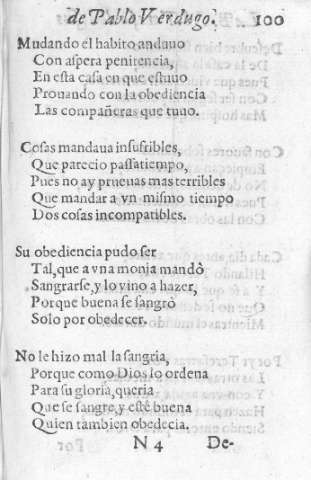 de Pablo Verdugo. 100
Mudando el habito anduuo
Con aspera penitencia,
En esta casa en que estuuo
Prouando con la obediencia
Las compañeras que tuuo.
Cosas mandaua insufribles,
Que parecio passatiempo,
Pues no ay prueuas mas terribles
Que mandar a vn mismo tiempo
Dos cosas incompatibles.
Su obediencia pudo ser
Tal, que a vna monja mandò
Sangrarse, y lo vino a hazer,
Porque buena se sangrò
Solo por obedecer.
No le hizo mal la sangria,
Porque como Dios lo ordena
Para su gloria, queria
Que se sangre, y esté buena
Quien tambien obedecia.
N 4 De-